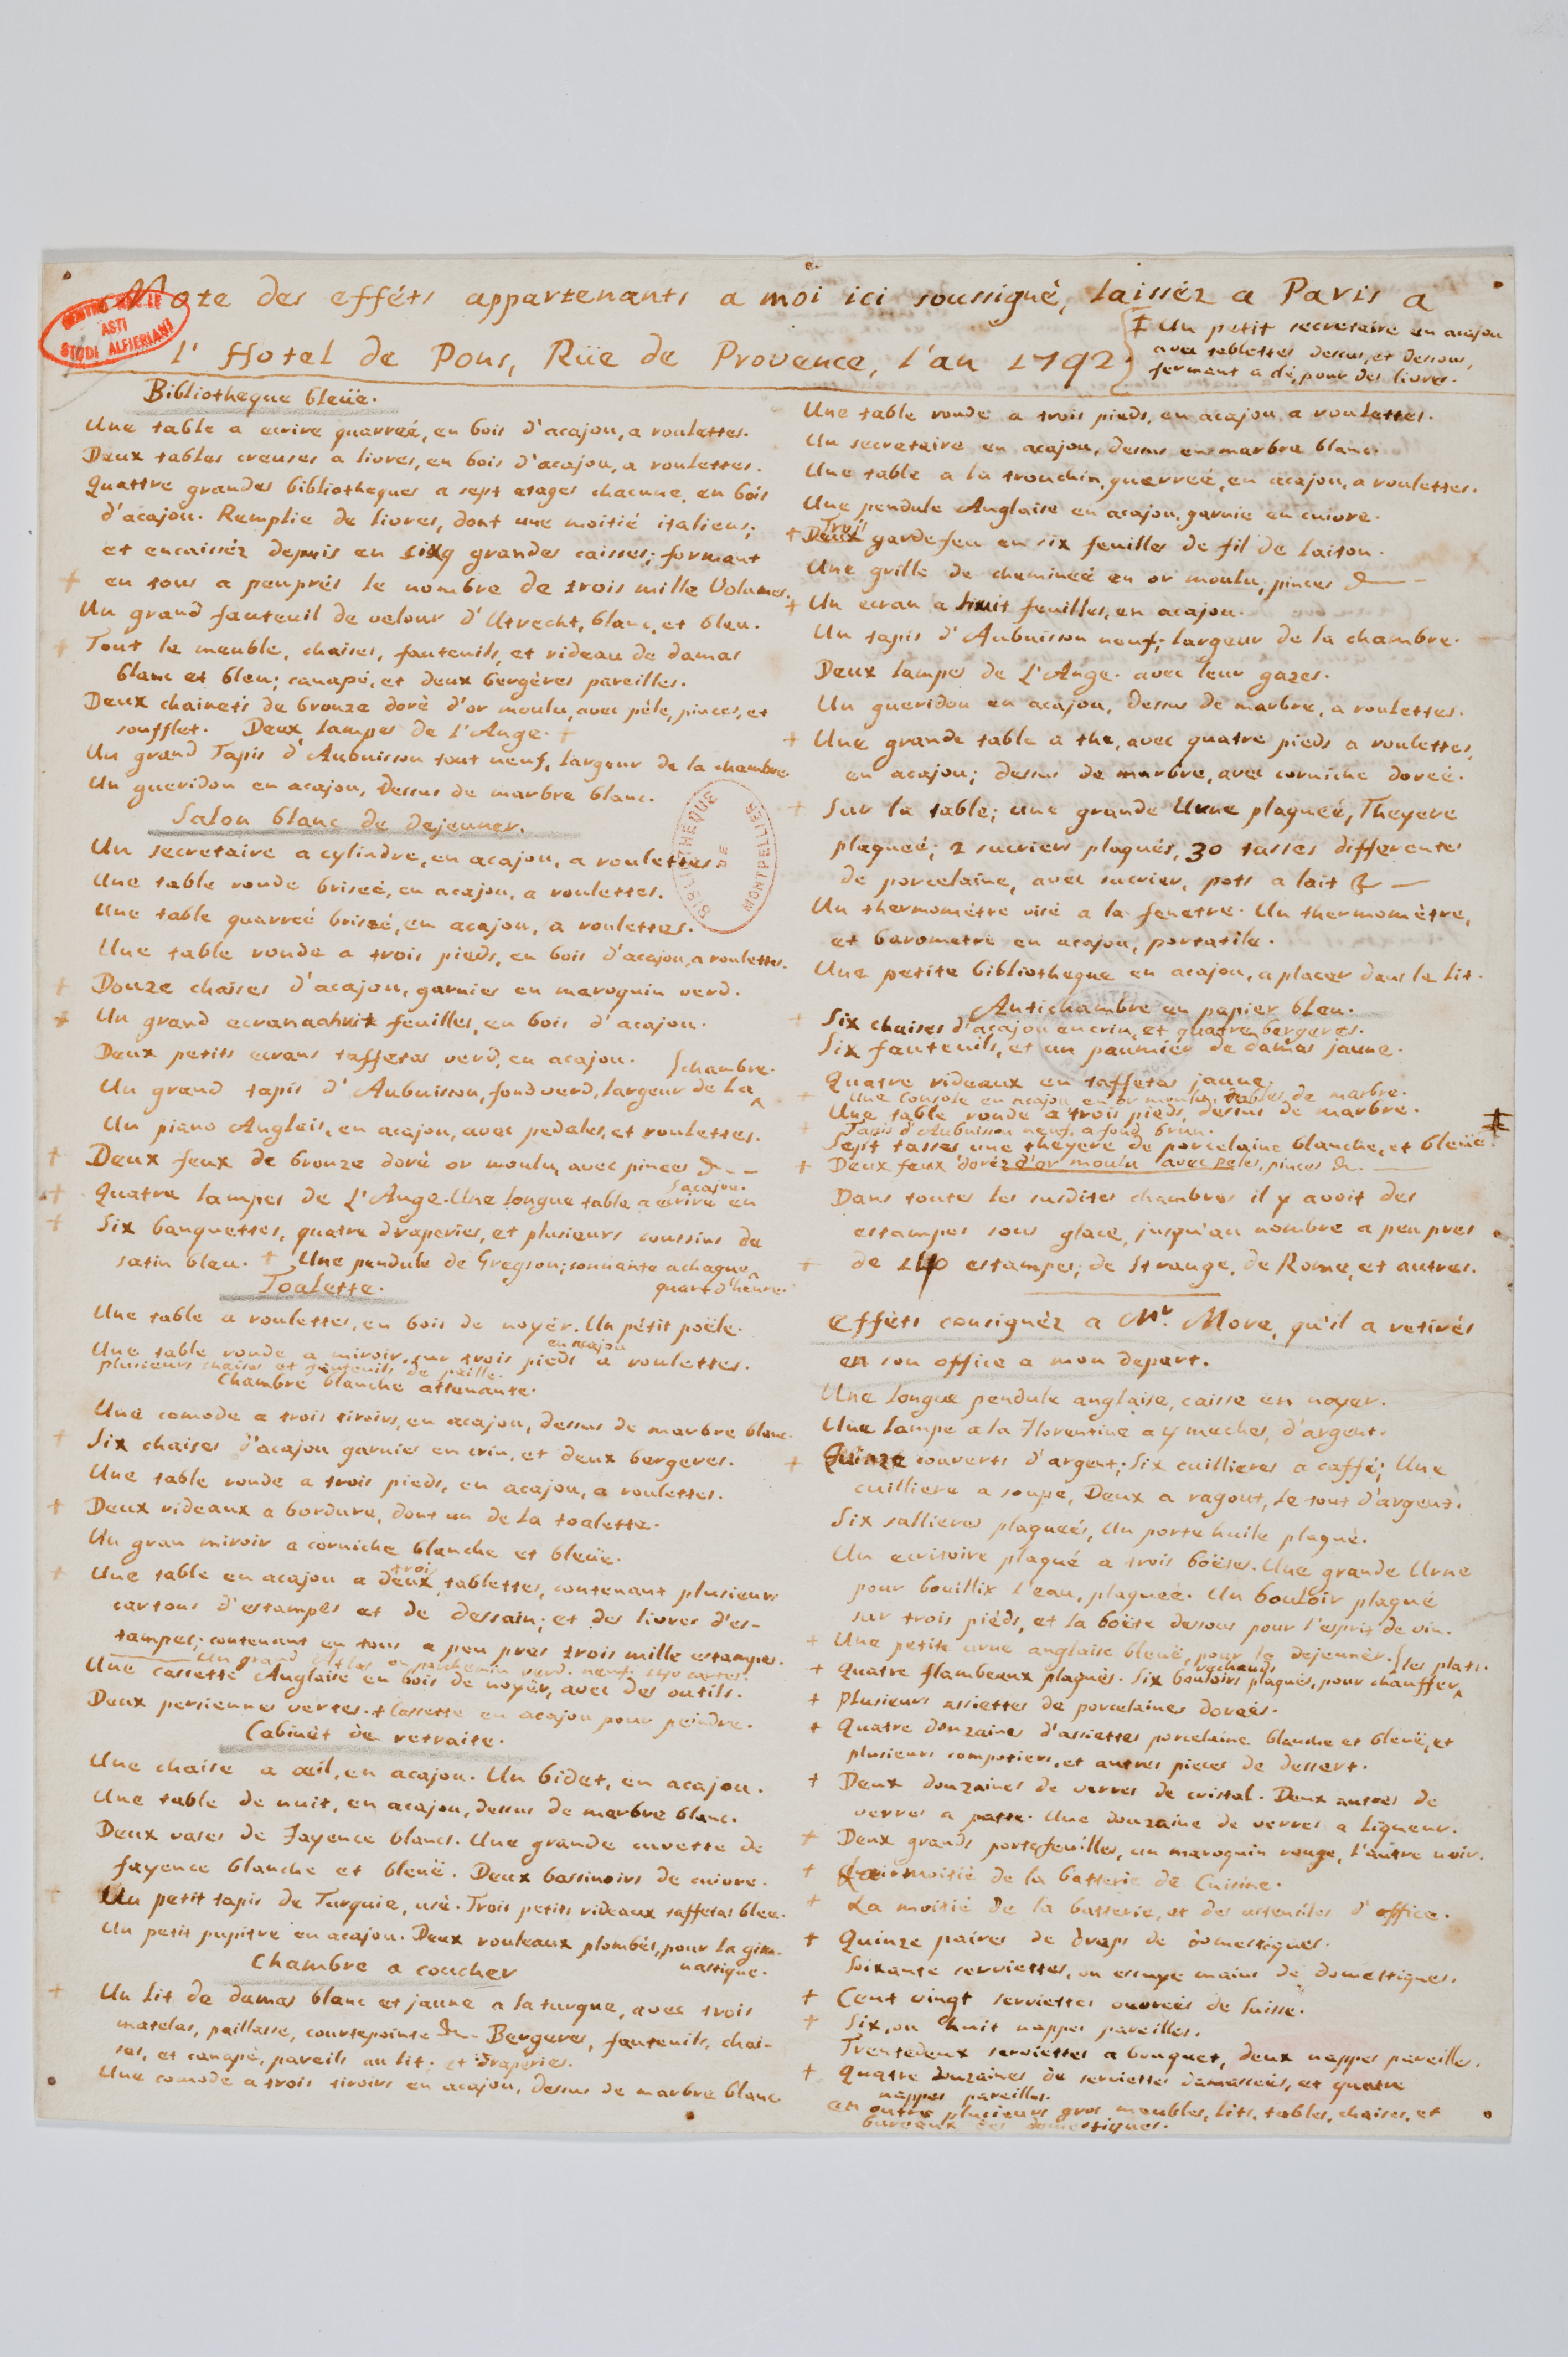 Note des efféts appartenants a moi ici soussigné, laissèz a Paris a
l'Hotel de Pons, Rüe de Provence, l'an 1792.
‡ Un petit secretaire en acajou
avec tablettes dessus, et dessous,
fermant a clé, pour des livres.
CENTRO
ASTI
STUDI ALFIERIANI
Bibliotheque bleüe.
Une table a ecrire quarreé, en bois d'acajou, a roulettes.
Deux tables creuses a livres, en bois d'acajou, a roulettes.
Quattre grandes bibliotheques a sept etages chacune, en bois
d'acajou. Remplie de livres, dont une moitié italiens;
et encaissèz depuis en grandes caisses; formant
+ en tous a peuprès le nombre de trois mille Volumes.
Un grand fauteuil de velour d'Utrecht, blanc, et bleu.
+ Tout le meuble, chaises, fauteuils, et rideau de damas
blanc et bleu; canapé, et deux bergères pareilles.
Deux chainets de bronze doré d'or moulu, avec péle, pinces, et
soufflet. Deux lampes de l'Ange. +
Un grand Tapis d'Aubuisson tout neuf, largeur de la chambre.
Un gueridon en acajou, dessus de marbre blanc.
BIBLIOTHEQUE DE MONTPELLIER
Salon blanc de dejeuner.
Un secretaire a cylindre, en acajou, a roulettes
Une table ronde briseé, en acajou, a roulettes.
Une table quarreé briseé, en acajou, a roulettes.
Une table ronde a trois pieds, en bois d'acajou, a roulettes.
+ Douze chaises d'acajou, garnies en maroquin verd.
+ Un grand ecran a huit feuilles, en bois d'acajou.
Deux petits ecrans taffetas verd, en acajou.
Un grand tapis d'Aubuisson, fond verd, largeur de la chambre.
Un piano Anglais, en acajou, avec pedales, et roulettes.
+ Deux feux de bronze doré or moulu, avec pinces &--
+ Quatre lampes de L'Ange. Une longue table a ecrire en acajou.
+ Six banquettes, quatre draperies, et plusieurs coussins de
satin bleu. + Une pendule de Gregson; sonnante a chaque
quart d'heure.
Toalette.
Une table a roulettes, en bois de noyér. Un pétit poële.
en acajou
Une table ronde a miroir, sur trois pieds a roulettes.
plusieurs chaises et fauteuils de paille.
Chambre blanche attenante.
Une comode a trois tiroirs, en acajou, dessus de marbre blanc.
+ Six chaises d'acajou garnies en crin, et deux bergeres.
Une table ronde a trois pieds, en acajou, a roulettes.
+ Deux rideaux a bordure, dont un de la toalette.
Un gran miroir a corniche blanche et bleüe.
trois
+ Une table en acajou a deux tablettes, contenant plusieurs
cartons d'estampes et de dessain; et des livres d'es-
tampes; contenant en tous a peu pres trois mille estampes.
Un grand Atlas en parchemin verd. neuf.
Une cassette Anglaise en bois de noyér, avec des outils.
Deux persiennes vertes. + Cassette en acajou pour peindre.
Cabinèt de retraite.
Une chaise a œil, en acajou. Un bidet, en acajou.
Une table de nuit, en acajou, dessus de marbre blanc.
Deux vases de Fayence blancs. Une grande cuvette de
fayence blanche et bleüe. Deux bassinoirs de cuivre.
+ Un petit tapis de Turquie, usé. Trois petits rideaux taffetas bleu.
Un petit pupitre en acajou. Deux rouleaux plombés, pour la gim-
nastique.
Chambre a coucher
+ Un lit de damas blanc et jaune a la turque, avec trois
matelas, paillasse, courtepointe &-- Bergeres, fauteuils, chai-
ses, et canapé, pareils au lit. et draperies.
Une comode a trois tiroirs en acajou, dessus de marbre blanc
Une table ronde a trois pieds, en acajou, a roulettes.
Un secretaire en acajou, dessus en marbre blanc.
Une table a la tronchin, quarreé, en acajou, a roulettes.
Une pendule Anglaise en acajou, garnie en cuivre.
Trois
+ Deux gardefeu en six feuilles de fil de laiton.
Une grille de chemineé en or moulu, pinces &--
+ Un ecran a huit feuilles, en acajou.
Un tapis d'Aubuisson neuf; largeur de la chambre.
Deux lampes de L'Ange. avec leur gazes.
Un gueridon en acajou, dessus de marbre, a roulettes.
+ Une grande table a the, avec quatre pieds a roulettes,
en acajou; dessus de marbre, avec corniche doreé.
+ Sur la table; une grande Urne plaqueé, Theyere
plaqueé; 2 sucriers plaqués, 30 tasses differentes
de porcelaine, avec sucrier, pots a lait &--
Un thermométre visé a la fenetre. Un thermométre,
et barometre en acajou, portatile.
Une petite bibliotheque en acajou, a placer dans le lit.
Antichambre en papier bleu.
+ Six chaises d'acajou en crin, et quatre bergeres.
Six fauteuils, et un paumiér de damas jaune.
Quatre rideaux en taffetas jaune.
+ Une console en acajou en or moulu, tables de marbre.
Une table ronde a trois pieds, dessus de marbre. ‡
+ Tapis d'Aubuisson neuf, a fond brun.
Sept tasses une theyere de porcelaine blanche, et bleüe.
+ Deux feux doréz d'or moulu avec peles, pinces &--
Dans toutes les susdites chambres il y avoit des
estampes sous glace, jusqu'au nombre a peu pres
+ de 140 estampes; de Strange, de Rome, et autres.
Efféts consignèz a Mr. More, qu'il a retirés
en son office a mon depart.
Une longue pendule anglaise, caisse en noyer.
Une lampe a la Florentine a 4 meches, d'argent.
+ Quinze couverts d'argent; Six cuillieres a caffé; Une
cuilliere a soupe, Deux a ragout, le tout d'argent.
Six sallieres plaqueés, Un porte huile plaqué.
Un ecritoire plaqué a trois boëtes. Une grande Urne
pour bouillir l'eau, plaqueé. Un bouloir plaqué
sur trois piéds, et la boëte dessous pour l'esprit de vin.
+ Une petite urne anglaise bleuë, pour le dejeunèr.
rechauds
+ Quatre flambeaux plaqués. Six bouloirs plaqués, pour chauffer les plats.
+ Plusieurs assiettes de porcelaines doreés.
+ Quatre douzaines d'assiettes porcelaine blanche et bleuë, et
plusieurs compotiers, et autres pieces de dessert.
+ Deux douzaines de verres de cristal. Deux autres de
verres a patte. Une douzaine de verres a liqueur.
+ Deux grands portefeuilles, un maroquin rouge, l'autre noir.
+ La moitié de la batterie de Cuisine.
+ La moitié de la batterie, et des ustensiles d'office.
+ Quinze paires de draps de domestiques.
Soixante serviettes, ou essuye mains de domestiques.
+ Cent vingt serviettes ouvreés de Suisse.
+ Six, ou huit nappes pareilles.
Trentedeux serviettes a bouquet, deux nappes pareilles.
+ Quatre douzaines de serviettes damasceés, et quatre
nappes pareilles.
en outre plusieurs gros meubles, lits, tables, chaises, et
bureaux des domestiques.